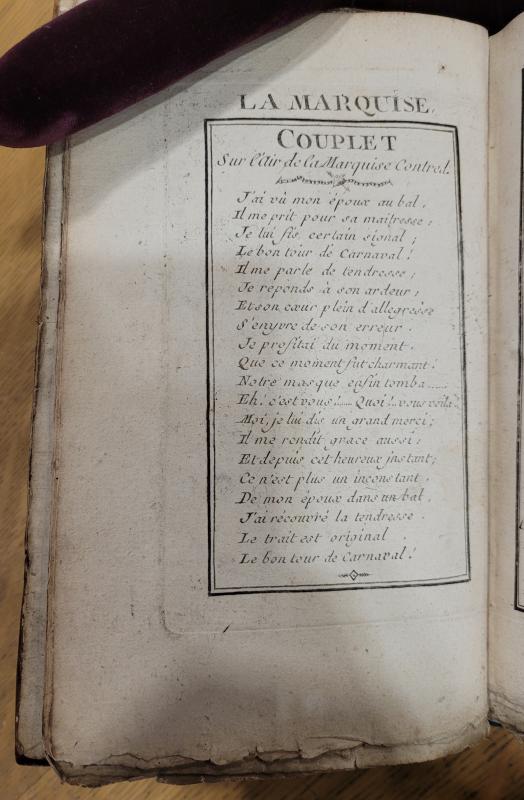 LA MARQUISE.
COUPLET
Sur l'Air de la Marquise Contred.
J'ai vû mon époux au bal,
Il me prit pour sa maitresse;
Je lui fis certain signal;
Le bon tour de Carnaval!
Il me parle de tendresse;
Je réponds à son ardeur,
Et son cœur plein d'allegresse
S'enyvre de son erreur.
Je profitai du moment.
Que ce moment fut charmant!
Notre masque enfin tomba......
Eh! c'est vous!..... Quoi!.. vous voila!
Moi, je lui dis un grand merci;
Il me rendit grace aussi;
Et depuis cet heureux instant;
Ce n'est plus un inconstant.
De mon époux dans un bal,
J'ai récouvré la tendresse.
Le trait est original.
Le bon tour de Carnaval!